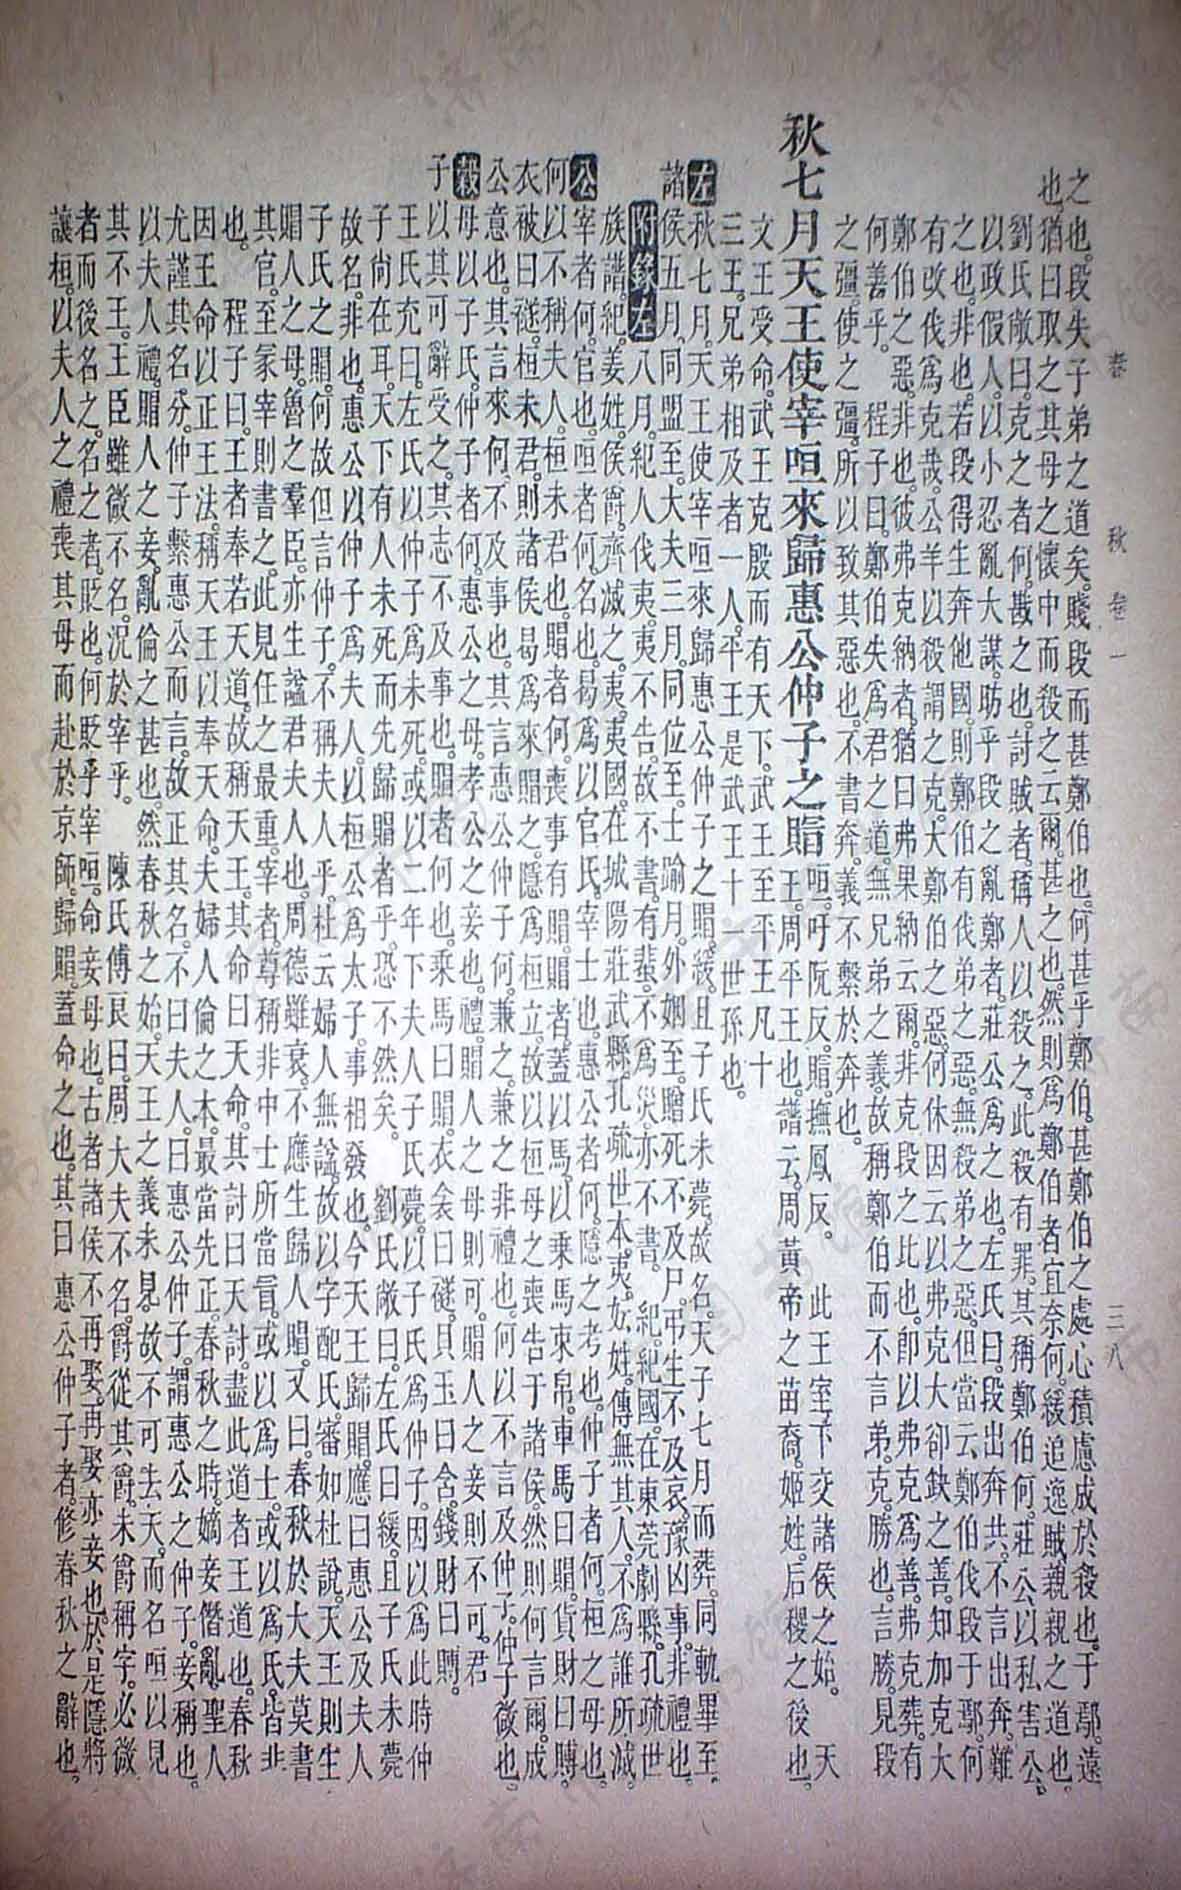 春 秋 卷一 三八
之也。段失子弟之道矣。賤段而甚鄭伯也。何甚乎鄭伯。甚鄭伯之處心積慮成於殺也。于鄢。遠
也。猶曰取之其母之懷中而殺之云爾。甚之也。然則爲鄭伯者宜奈何。緩追逸賊。親親之道也。
劉氏敞曰。克之者何。戡之也。討賊者。稱人以殺之。此殺有罪。其稱鄭伯何。莊公以私害公。
以政假人。以小忍亂大謀。昉乎段之亂鄭者。莊公爲之也。左氏曰。段出奔共。不言出奔。難
之也。非也。若段得生奔他國。則鄭伯有伐弟之惡。無殺弟之惡。但當云鄭伯伐段于鄢。何
有改伐爲克哉。公羊以殺謂之克。大鄭伯之惡。何休因云以弗克大郤缺之善。知加克大
鄭伯之惡。非也。彼弗克納者。猶曰弗果納云爾。非克段之比也。卽以弗克爲善。弗克葬。有
何善乎。 程子曰。鄭伯失爲君之道。無兄弟之義。故稱鄭伯而不言弟。克。勝也。言勝。見段
之彊。使之彊。所以致其惡也。不書奔。義不繫於奔也。
秋七月天王使宰咺來歸惠公仲子之賵 咺。吁阮反。賵。撫鳳反。 此王室下交諸侯之始。 天
王。周平王也。譜云。周黃帝之苗裔。姬姓。后稷之後也。
文王受命。武王克殷而有天下。武王至平王凡十
三王。兄弟相及者一人。平王是武王十一世孫也。
左 秋七月。天王使宰咺來歸惠公仲子之賵。緩。且子氏未薨。故名。天子七月而葬。同軌畢至。
諸侯五月。同盟至。大夫三月。同位至。士踰月。外姻至。贈死不及尸。弔生不及哀。豫凶事。非禮也。
附錄左 八月。紀人伐夷。夷不告。故不書。有蜚。不爲災。亦不書。 紀。紀國。在東莞劇縣。孔疏。世
族譜。紀。姜姓。侯爵。齊滅之。夷。夷國。在城陽莊武縣。孔疏。世本。夷。妘姓。傳無其人。不爲誰所滅。
公 宰者何。官也。咺者何。名也。曷爲以官氏。宰士也。惠公者何。隱之考也。仲子者何。桓之母也。
何以不稱夫人。桓未君也。賵者何。喪事有賵。賵者。蓋以馬。以乘馬束帛。車馬曰賵。貨財曰賻。
衣被曰襚。桓未君。則諸侯曷爲來賵之。隱爲桓立。故以桓母之喪告于諸侯。然則何言爾。成
公意也。其言來何。不及事也。其言惠公仲子何。兼之。兼之非禮也。何以不言及仲子。仲子微也。
穀 母以子氏。仲子者何。惠公之母。孝公之妾也。禮。賵人之母則可。賵人之妾則不可。君
子以其可辭受之。其志不及事也。賵者何也。乘馬曰賵。衣衾曰襚。貝玉曰含。錢財曰賻。
王氏充曰。左氏以仲子爲未死。或以二年下夫人子氏薨。以子氏爲仲子。因以爲此時仲
子尚在耳。天下有人未死而先歸賵者乎。恐不然矣。 劉氏敞曰。左氏曰緩。且子氏未薨
故名。非也。惠公以仲子爲夫人。以桓公爲太子。事相發也。今天王歸賵。應曰惠公及夫人
子氏之賵。何故但言仲子。不稱夫人乎。杜云婦人無謚。故以字配氏。審如杜說。天王則生
賵人之母。魯之羣臣。亦生謚君夫人也。周德雖衰。不應生歸人賵。又曰。春秋於大夫莫書
其官。至冢宰則書之。此見任之最重。宰者。尊稱。非中士所當冒。或以爲士。或以爲氏。皆非
也。 程子曰。王者奉若天道。故稱天王。其命曰天命。其討曰天討。盡此道者。王道也。春秋
因王命以正王法。稱天王以奉天命。夫婦人倫之本。最當先正。春秋之時。嫡妾僭亂。聖人
尤謹其名分。仲子繫惠公而言。故正其名。不曰夫人。曰惠公仲子。謂惠公之仲子。妾稱也。
以夫人禮。賵人之妾。亂倫之甚也。然春秋之始。天王之義未見。故不可去天。而名咺以見
其不王。王臣雖微不名。況於宰乎。 陳氏傅良曰。周大夫不名。爵從其爵。未爵稱字。必微
者而後名之。名之者。貶也。何貶乎宰咺。命妾母也。古者諸侯不再娶。再娶亦妾也。於是隱將
讓桓。以夫人之禮喪其母而赴於京師。歸賵。蓋命之也。其曰惠公仲子者。修春秋之辭也。